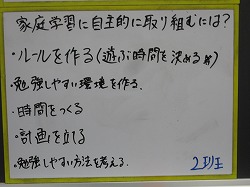 家庭学習に自主的に取り組むには?
・ルールを作る(遊ぶ時間を決めるet)
・勉強しやすい環境を作る.
・時間をつくる
・計画を立てる
・勉強しやすい方法を考える.
2班